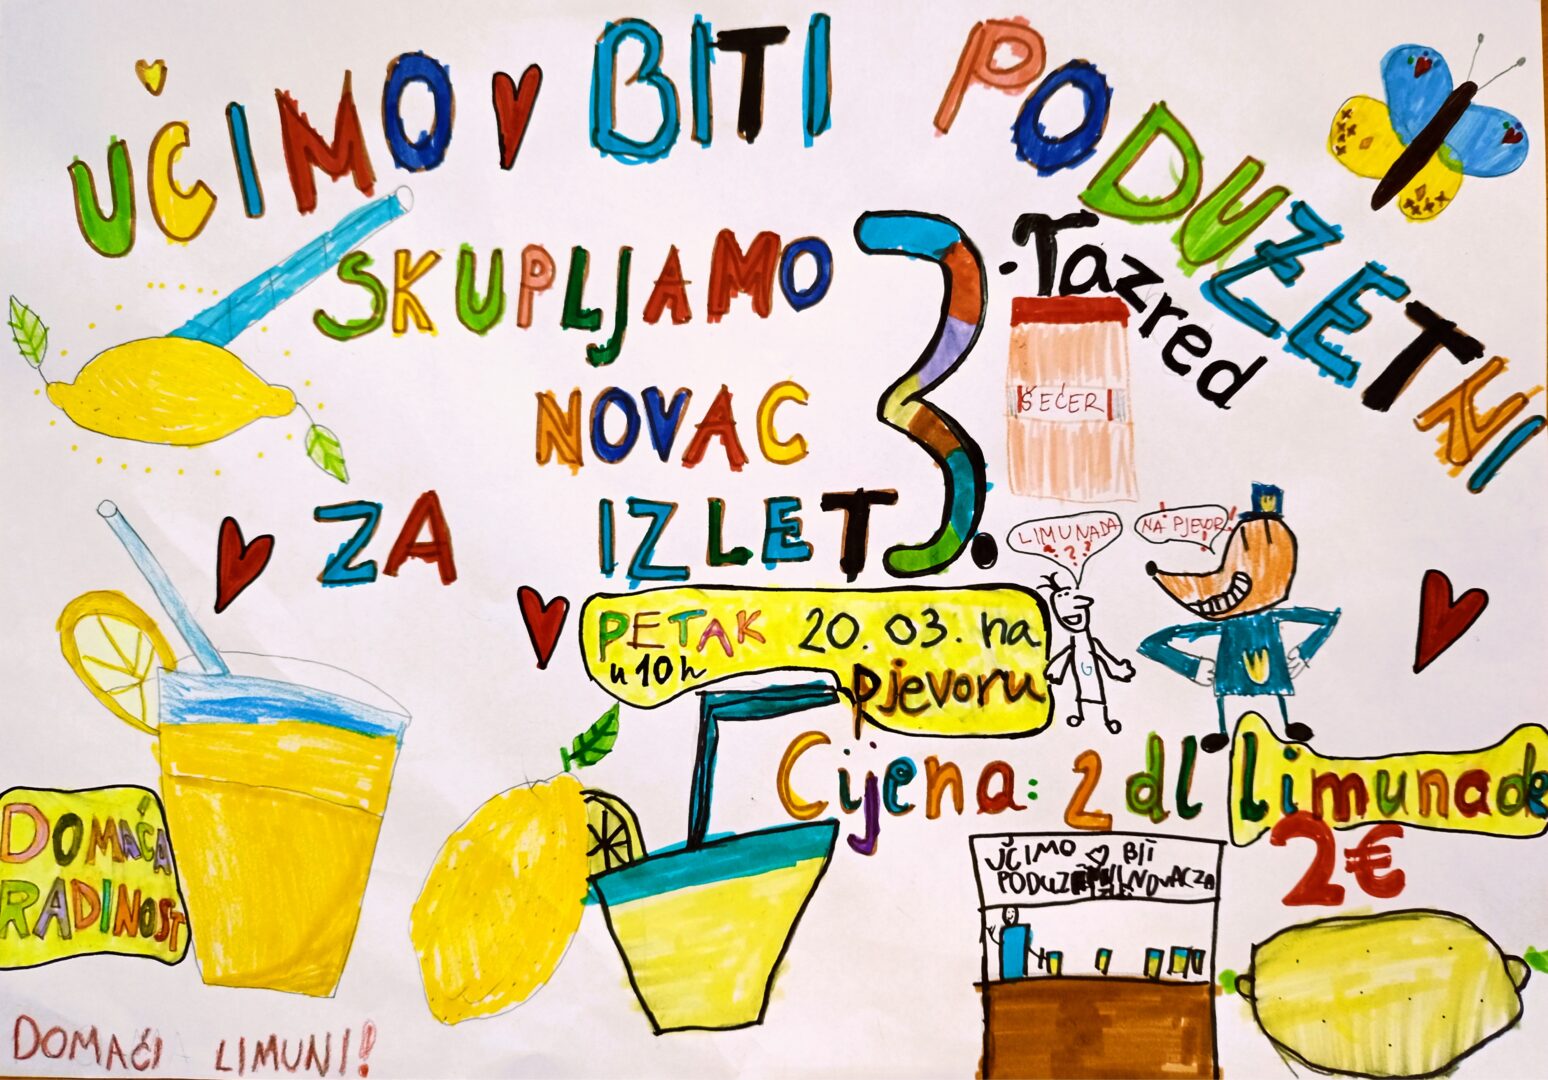 UČIMO BITI PODUZETNI
SKUPLJAMO
NOVAC
ZA IZLET
3. Tazred
ŠEĆER
LIMUNADA
???
NA PJEVOR!
PETAK 20.03. na
u 10h
Pjevoru
Cijena: 2 dl Limunade
2€
DOMAĆA
RADINOST
UČIMO BIT
NOVAC ZA
DOMAĆI LIMUNI!